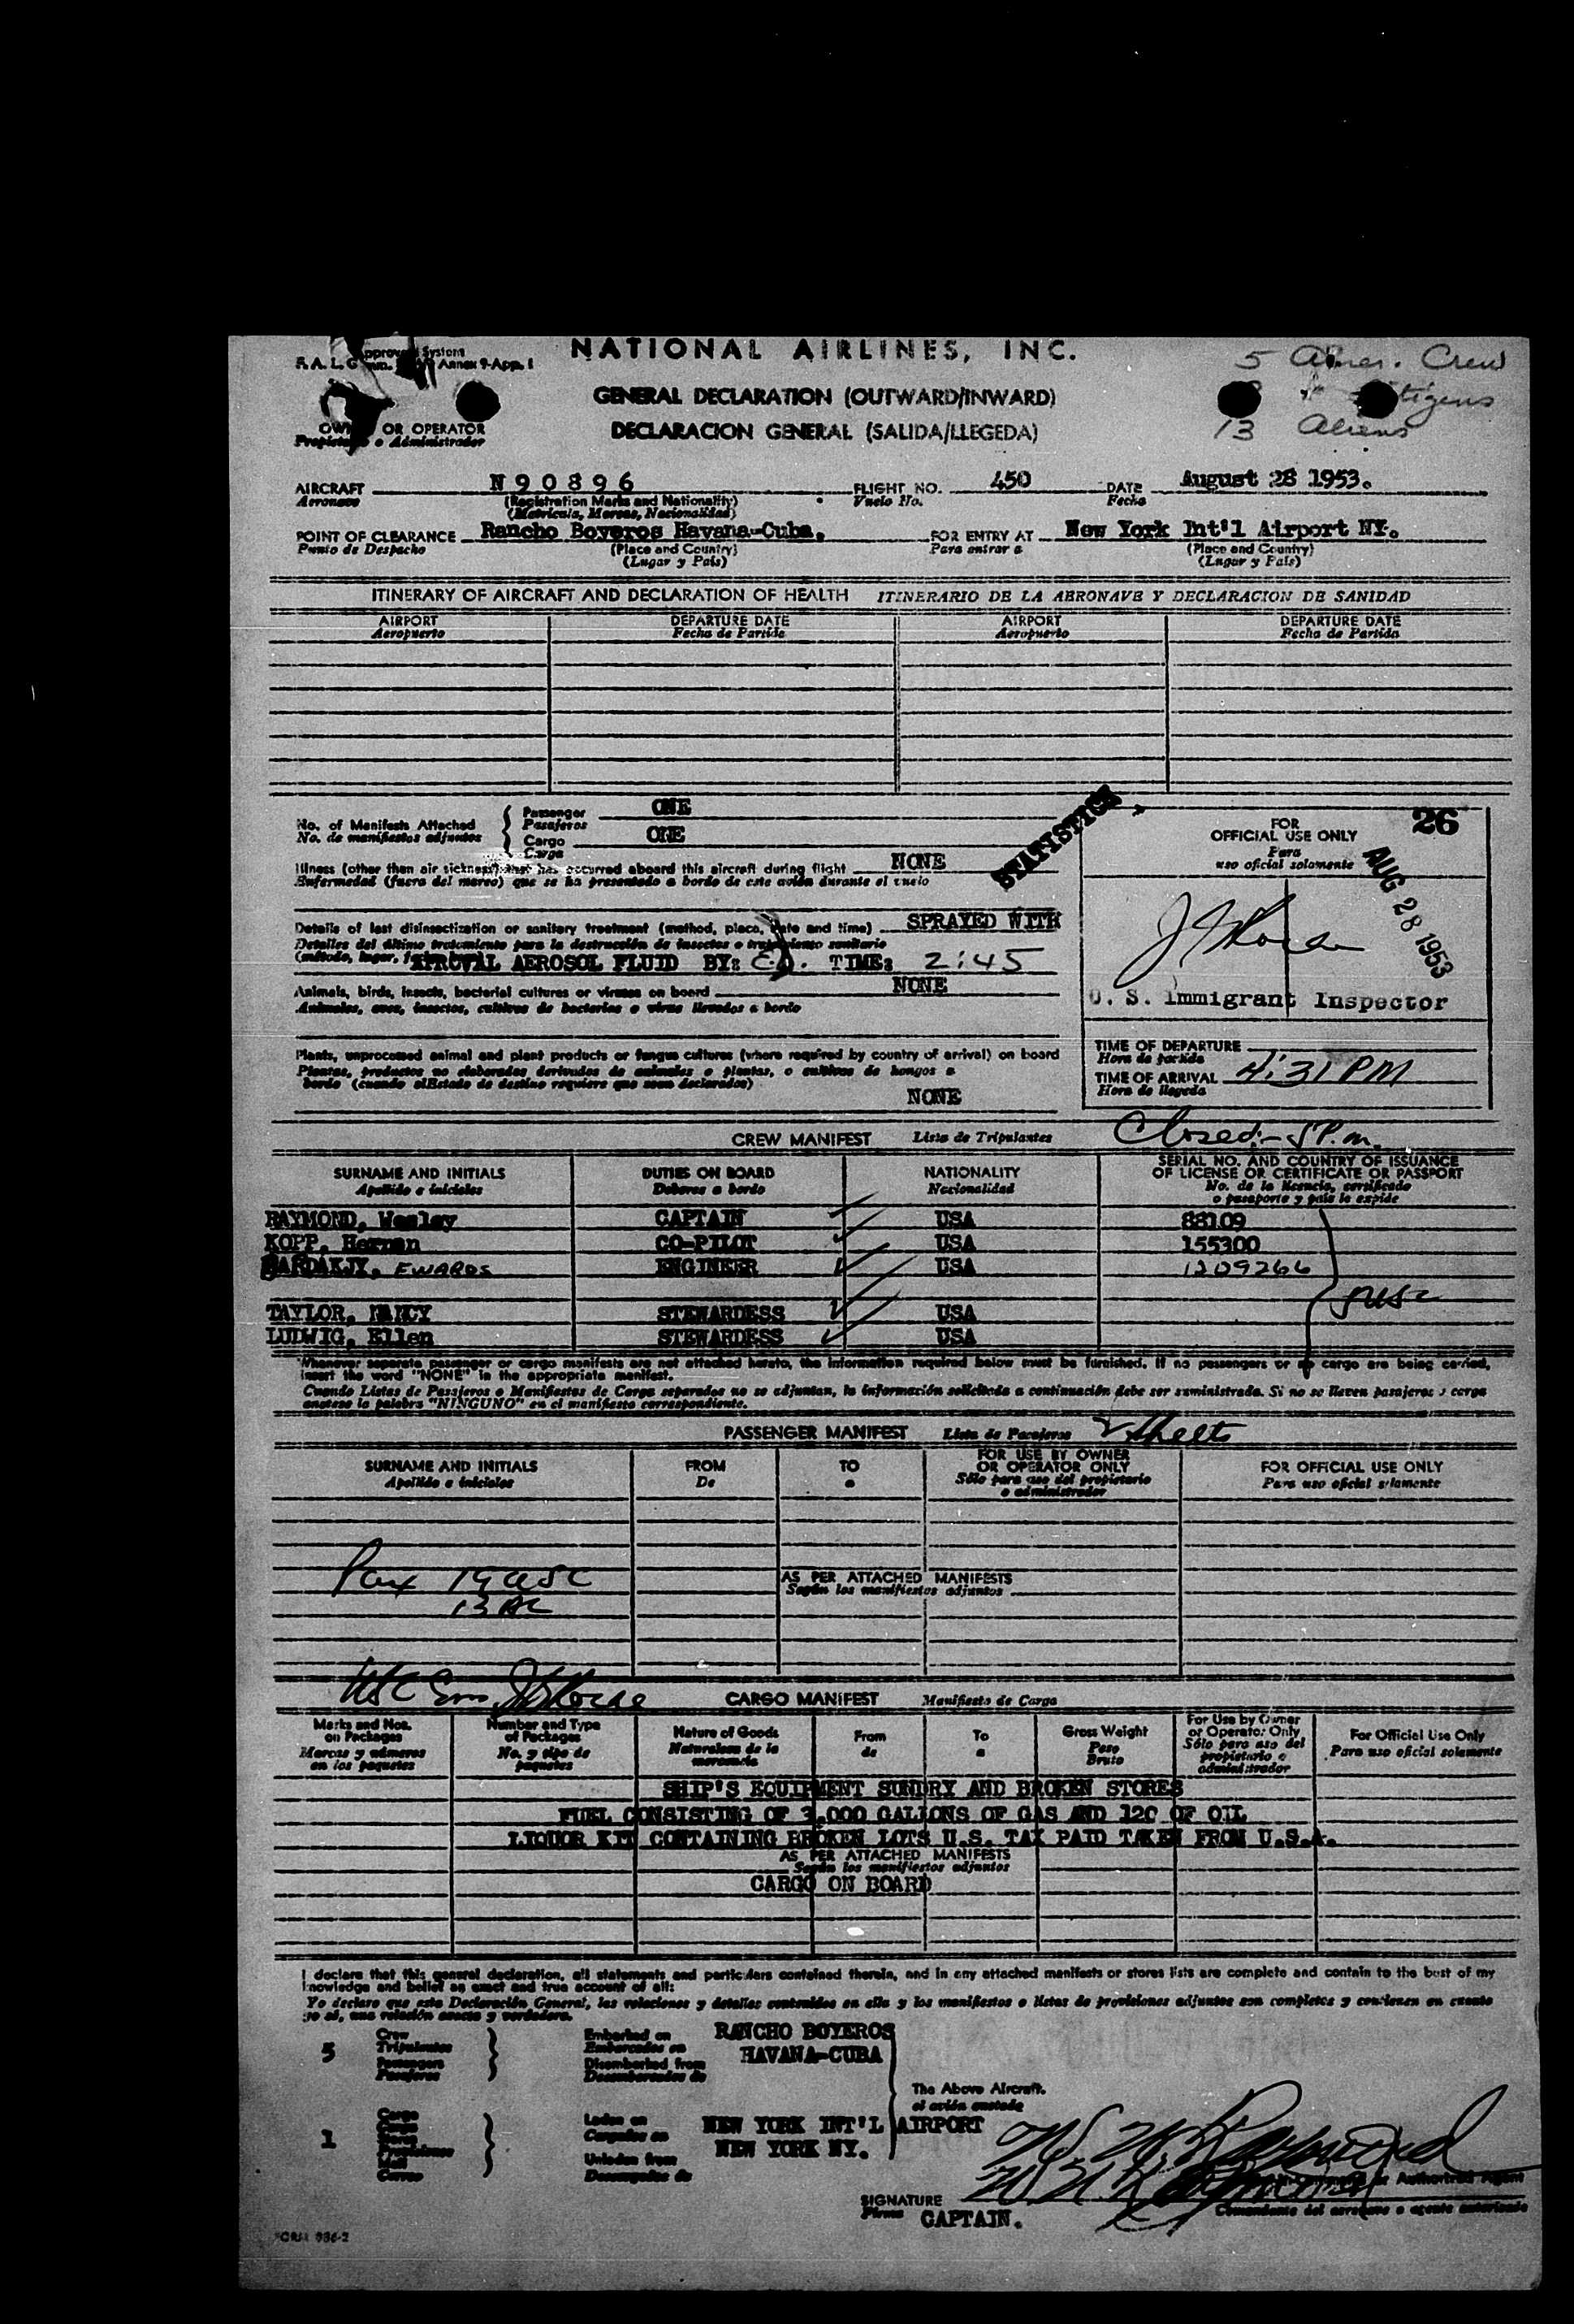 NATIONAL AIRLINES, INC.
5 Amer. Crew
F. A. L. Annex 9-App. 1
GENERAL DECLARATION (OUTWARD/INWARD)
DECLARACION GENERAL (SALIDA/LLEGEDA)
13 Aliens
OR OPERATOR
o Administrador
AIRCRAFT N90896 FLIGHT NO. 450 DATE August 28 1953.
Aeronave (Registration Marks and Nationality) Vuelo No. Fecha
(Matricula, Marcas, Nacionalidad)
POINT OF CLEARANCE Rancho Boyeros Havana-Cuba. FOR ENTRY AT New York Int'l Airport NY.
Punto de Despacho (Place and Country) Para entrar a (Place and Country)
(Lugar y Pais) (Lugar y Pais)
ITINERARY OF AIRCRAFT AND DECLARATION OF HEALTH ITINERARIO DE LA AERONAVE Y DECLARACION DE SANIDAD
AIRPORT DEPARTURE DATE AIRPORT DEPARTURE DATE
Aeropuerto Fecha de Partida Aeropuerto Fecha de Partida
No. of Manifests Attached Passenger ONE
No. de manifiestos adjuntos Pasajeros
Cargo ONE
Carga
Illness (other than air sickness) that has occurred aboard this aircraft during flight NONE
Enfermedad (fuera del mareo) que se ha presentado a bordo de este avión durante el vuelo
STATISTICS
Details of last disinsectization or sanitary treatment (method, place, date and time) SPRAYED WITH
Detalles del último tratamiento para la destrucción de insectos o tratamiento sanitario
AEROSOL FLUID BY: TIME: 2:45
Animals, birds, insects, bacterial cultures or viruses on board NONE
Animales, aves, insectos, cultivos de bacterias o virus llevados a bordo
Plants, unprocessed animal and plant products or fungus cultures (where required by country of arrival) on board
Plantas, productos no elaborados derivados de animales o plantas, o cultivos de hongos a
bordo (cuando el Estado de destino requiere que sean declarados)
NONE
FOR 26
OFFICIAL USE ONLY
Para
uso oficial solamente
AUG 28 1953
U. S. Immigrant Inspector
TIME OF DEPARTURE
Hora de partida
TIME OF ARRIVAL 4:31 PM
Hora de llegada
Closed:- 5 P.m.
CREW MANIFEST Lista de Tripulantes
SURNAME AND INITIALS DUTIES ON BOARD NATIONALITY SERIAL NO. AND COUNTRY OF ISSUANCE
OF LICENSE OR CERTIFICATE OR PASSPORT
Apellido e iniciales Deberes a bordo Nacionalidad No. de la licencia, certificado
o pasaporte y pais lo expide
RAYMOND, Wesley CAPTAIN USA 88109
KOPP, Herman CO-PILOT USA 155300
BARDAKJY, EWARDS ENGINEER USA 1209266
5USC
TAYLOR, NANCY STEWARDESS USA
LUDWIG, Ellen STEWARDESS USA
Whenever separate passenger or cargo manifests are not attached hereto, the information required below must be furnished. If no passengers or no cargo are being carried,
insert the word "NONE" in the appropriate manifest.
Cuando Listas de Pasajeros o Manifiestos de Carga separados no se adjuntan, la información solicitada a continuación debe ser suministrada. Si no se llevan pasajeros o carga
anótese la palabra "NINGUNO" en el manifiesto correspondiente.
PASSENGER MANIFEST Lista de Pasajeros 2 Sheets
SURNAME AND INITIALS FROM TO FOR USE BY OWNER
OR OPERATOR ONLY FOR OFFICIAL USE ONLY
Apellido e iniciales De a Sólo para uso del propietario
o administrador Para uso oficial solamente
Pax 19 USC
13 AC
AS PER ATTACHED MANIFESTS
Según los manifiestos adjuntos
CARGO MANIFEST Manifiesto de Carga
Marks and Nos.
on Packages
Marcas y números
en los paquetes
Number and Type
of Packages
No. y tipo de
paquetes
Nature of Goods
Naturaleza de la
mercancia
From
de
To
a
Gross Weight
Peso
Bruto
For Use by Owner
or Operator Only
Sólo para uso del
propietario o
administrador
For Official Use Only
Para uso oficial solamente
SHIP'S EQUIPMENT SUNDRY AND BROKEN STORES
FUEL CONSISTING OF 3,000 GALLONS OF GAS AND 120 OF OIL
LIQUOR KIT CONTAINING BROKEN LOTS U.S. TAX PAID TAKEN FROM U.S.A.
AS PER ATTACHED MANIFESTS
Según los manifiestos adjuntos
CARGO ON BOARD
I declare that this general declaration, all statements and particulars contained therein, and in any attached manifests or stores lists are complete and contain to the best of my
knowledge and belief an exact and true account of all:
Yo declaro que esta Declaración General, las relaciones y detalles contenidos en ella y los manifiestos o listas de provisiones adjuntos son completos y contienen en cuanto
yo sé, una relación exacta y verdadera.
5 Crew
Tripulantes
Passengers
Pasajeros
Embarked on
Embarcados en
Disembarked from
Desembarcados de
RANCHO BOYEROS
HAVANA-CUBA
The Above Aircraft.
el avión anotado
1 Cargo
Mail
Correo
Laden on
Cargados en
Unladen from
Descargados de
NEW YORK INT'L AIRPORT
NEW YORK NY.
W H Raymond
or Authorized Agent
SIGNATURE
Firma
CAPTAIN.
Comandante del aeroplano o agente autorizado
FORM 936-2